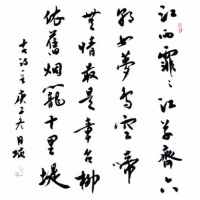 江雨霏〻江草齊六
朝如夢鳥空啼
無情最是章台柳
依舊烟籠十里堤
古詩 庚子冬月